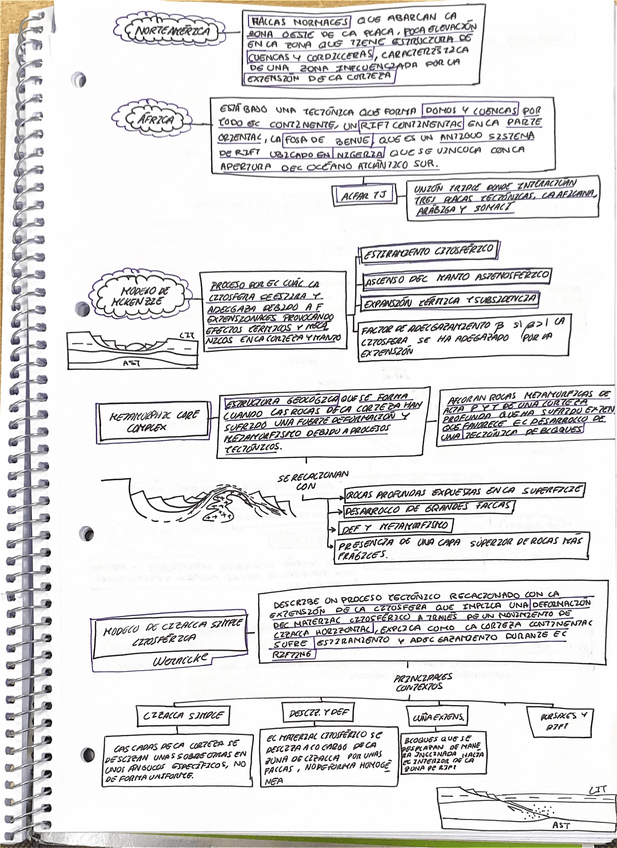 NORTEAMÉRICA
FALLAS NORMALES QUE ABARCAN LA
ZONA OESTE DE LA PLACA, POCA ELEVACIÓN
EN LA ZONA QUE TIENE ESTRUCTURA DE
CUENCAS Y CORDILLERAS, CARACTERÍSTICA
DE UNA ZONA INFLUENCIADA POR LA
EXTENSIÓN DE LA CORTEZA
ÁFRICA
ESTÁ BAJO UNA TECTÓNICA QUE FORMA DOMOS Y CUENCAS POR
TODO EL CONTINENTE, UN RIFT CONTINENTAL EN LA PARTE
ORIENTAL, LA FOSA DE BENUE, QUE ES UN ANTIGUO SISTEMA
DE RIFT UBICADO EN NIGERIA QUE SE VINCULA CON LA
APERTURA DEL OCÉANO ATLÁNTICO SUR.
ALFAR TJ
UNIÓN TRIPLE DONDE INTERACTÚAN
TRES PLACAS TECTÓNICAS, LA AFRICANA,
ARÁBIGA Y SOMALÍ
MODELO DE
MCKENZIE
PROCESO POR EL CUÁL LA
LITOSFERA SE ESTIRA Y
ADELGAZA DEBIDO A F
EXTENSIONALES PROVOCANDO
EFECTOS TÉRMICOS Y MECÁ
NICOS EN LA CORTEZA Y MANTO
ESTIRAMIENTO LITOSFÉRICO
ASCENSO DEL MANTO ASTENOSFÉRICO
EXPANSIÓN TÉRMICA Y SUBSIDENCIA
FACTOR DE ADELGAZAMIENTO β SI β>1 LA
LITOSFERA SE HA ADEGAZADO POR LA
EXTENSIÓN
LIT
AST
METAMORPHIC CORE
COMPLEX
ESTRUCTURA GEOLÓGICA QUE SE FORMA
CUANDO LAS ROCAS DE LA CORTEZA HAN
SUFRIDO UNA FUERTE DEFORMACIÓN Y
METAMORFISMO DEBIDO A PROCESOS
TECTÓNICOS.
AFLORAN ROCAS METAMORFICAS DE
ALTA P Y T DE UNA CORTEZA
PROFUNDA QUE HA SUFRIDO EXTEN
QUE FAVORECE EL DESARROLLO DE
UNA TECTÓNICA DE BLOQUES
SE RELACIONAN
CON
ROCAS PROFUNDAS EXPUESTAS EN LA SUPERFICIE
DESARROLLO DE GRANDES FALLAS
DEF Y METAMORFISMO
PRESENCIA DE UNA CAPA SUPERIOR DE ROCAS MÁS
FRÁGILES.
MODELO DE CIZALLA SIMPLE
LITOSFÉRICA
WERNICKE
DESCRIBE UN PROCESO TECTÓNICO RELACIONADO CON LA
EXTENSIÓN DE LA LITOSFERA QUE IMPLICA UNA DEFORMACIÓN
DEL MATERIAL LITOSFÉRICO A TRAVÉS DE UN MOVIMIENTO DE
CIZALLA HORIZONTAL, EXPLICA COMO LA CORTEZA CONTINENTAL
SUFRE ESTIRAMIENTO Y ADELGAZAMIENTO DURANTE EL
RIFTING
PRINCIPALES
CONTEXTOS
CIZALLA SIMPLE
DESLIZ. Y DEF
CUÑA EXTENS.
LAS CAPAS DE LA CORTEZA SE
DESLIZAN UNAS SOBRE OTRAS EN
UNOS ÁNGULOS ESPECÍFICOS, NO
DE FORMA UNIFORME.
EL MATERIAL LITOSFÉRICO SE
DESLIZA A LO LARGO DE LA
ZONA DE CIZALLA POR UNAS
FALLAS, NO DE FORMA HOMOGÉ
NEA
BLOQUES QUE SE
DESPLAZAN DE MANE
RA INCLINADA HACIA
EL INTERIOR DE LA
ZONA DE RIFT
Y
RIFT
LIT
AST